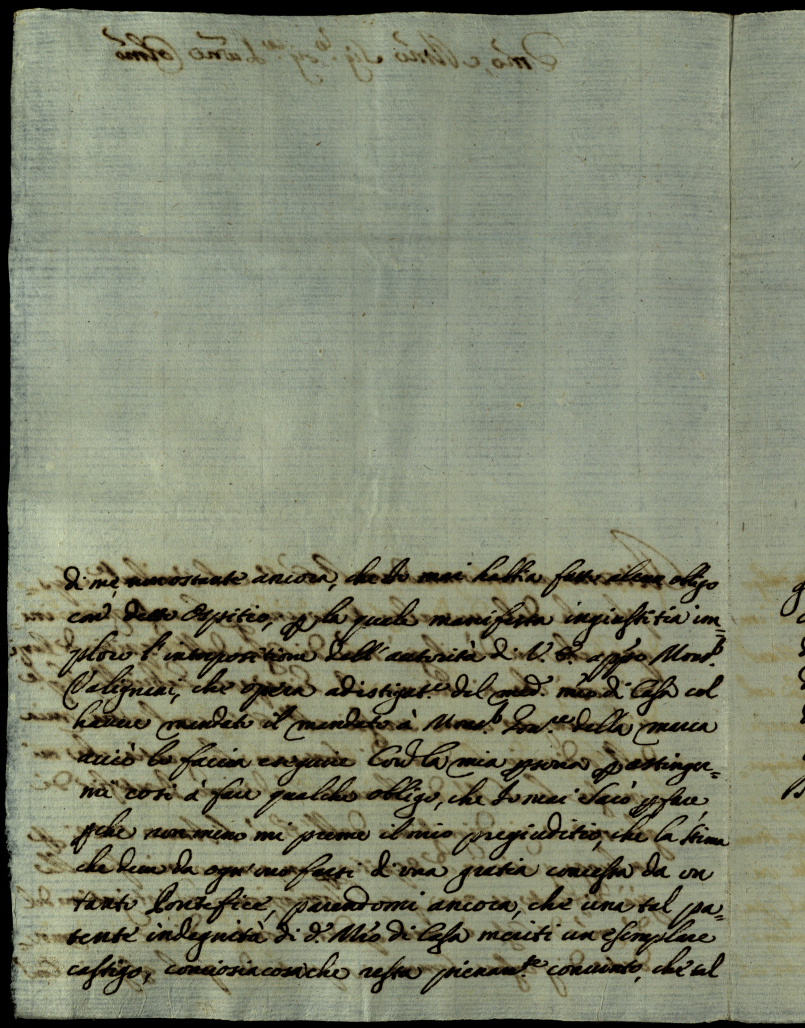 di me, nonostante ancora, che Io mai habbia fatto alcun obligo
con detto Ospitio, p la quale manifesta ingiustitia im=
ploro l'interpositione dell'autorità di V. E. appso Mons.r
Valignini, che opera ad istigat.e del med.o mro di Casa col
havere mandato il mandato à Mons.r Gov.re della marca
acciò lo faccia eseguire Con la mia psona p astinger=
mi cosi à fare qualche obligo, che Io mai sarò p fare,
pche non meno mi preme il mio pregiuditio, che la stima
che deve da ogn'uno farsi di una gratia concessa da un
tanto Pontefice, parendomi ancora, che una tal pa=
tente indegnità di d.o Mro di Casa meriti un esemplare
castigo, conciosiacosache resta pienam.te convinto, che tal